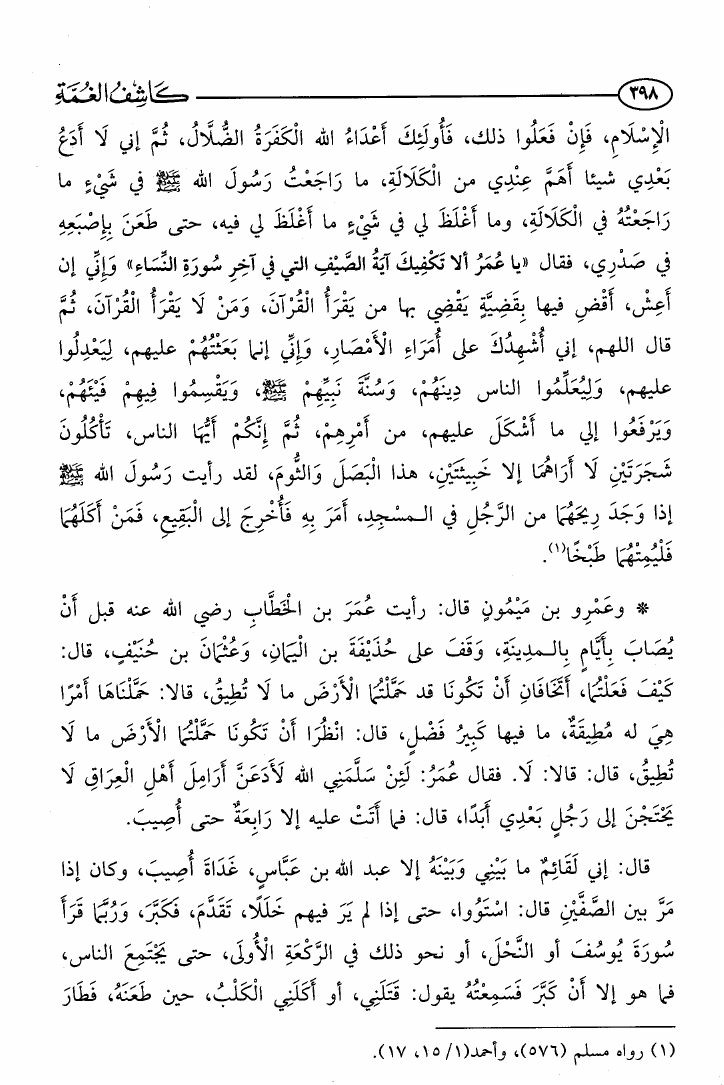 ٣٩٨ كَاشِفُ الغُمَّةِ
الْإِسْلَامِ، فَإِنْ فَعَلُوا ذلك، فَأُولَئِكَ أَعْدَاءُ الله الْكَفَرَةُ الضُّلَّالُ، ثُمَّ إني لَا أَدَعُ
بَعْدِي شيئا أَهَمَّ عِنْدِي من الْكَلَالَةِ، ما رَاجَعْتُ رَسُولَ الله ﷺ في شَيْءٍ ما
رَاجَعْتُهُ في الْكَلَالَةِ، وما أَغْلَظَ لي في شَيْءٍ ما أَغْلَظَ لي فيه، حتى طَعَنَ بِإِصْبَعِهِ
في صَدْرِي، فقال «يا عمَرُ ألا تَكْفِيكَ آيَةُ الصَّيْفِ التي في آخِرِ سُورَةِ النِّسَاءِ» وَإِنِّي إن
أَعِشْ، أَقْضِ فيها بِقَضِيَّةٍ يَقْضِي بها من يَقْرَأُ الْقُرْآنَ، وَمَنْ لَا يَقْرَأُ الْقُرْآنَ، ثُمَّ
قال اللهم، إني أُشْهِدُكَ على أُمَرَاءِ الْأَمْصَارِ، وَإِنِّي إنما بَعَثْتُهُمْ عليهم، لِيَعْدِلُوا
عليهم، وَلِيُعَلِّمُوا الناس دِينَهُمْ، وَسُنَّةَ نَبِيِّهِمْ ﷺ، وَيَقْسِمُوا فِيهِمْ فَيْئَهُمْ،
وَيَرْفَعُوا إلي ما أَشْكَلَ عليهم، من أَمْرِهِمْ، ثُمَّ إِنَّكُمْ أَيُّهَا الناس، تَأْكُلُونَ
شَجَرَتَيْنِ لَا أَرَاهُمَا إلا خَبِيثَتَيْنِ، هذا الْبَصَلَ وَالثُّومَ، لقد رأيت رَسُولَ الله ﷺ
إذا وَجَدَ رِيحَهُمَا من الرَّجُلِ في الـمسْجِدِ، أَمَرَ بِهِ فَأُخْرِجَ إلى الْبَقِيعِ، فَمَنْ أَكَلَهُمَا
فَلْيُمِتْهُمَا طَبْخًا(١).
* وعَمْرِو بن مَيْمُونٍ قال: رأيت عُمَرَ بن الْخَطَّابِ رضي الله عنه قبل أَنْ
يُصَابَ بِأَيَّامٍ بِالـمدِينَةِ، وَقَفَ على حُذَيْفَةَ بن الْيَمَانِ، وَعُثْمَانَ بن حُنَيْفٍ، قال:
كَيْفَ فَعَلْتُمَا، أَتَخَافَانِ أَنْ تَكُونَا قد حَمَّلْتُمَا الْأَرْضَ ما لَا تُطِيقُ، قالا: حَمَّلْنَاهَا أَمْرًا
هِيَ له مُطِيقَةٌ، ما فيها كَبِيرُ فَضْلٍ، قال: انْظُرَا أَنْ تَكُونَا حَمَّلْتُمَا الْأَرْضَ ما لَا
تُطِيقُ، قال: قالا: لَا. فقال عُمَرُ: لَئِنْ سَلَّمَنِي الله لَأَدَعَنَّ أَرَامِلَ أَهْلِ الْعِرَاقِ لَا
يَحْتَجْنَ إلى رَجُلٍ بَعْدِي أَبَدًا، قال: فما أَتَتْ عليه إلا رَابِعَةٌ حتى أُصِيبَ.
قال: إني لَقَائِمٌ ما بَيْنِي وَبَيْنَهُ إلا عبد الله بن عَبَّاسٍ، غَدَاةَ أُصِيبَ، وكان إذا
مَرَّ بين الصَّفَّيْنِ قال: اسْتَوُوا، حتى إذا لم يَرَ فيهم خَلَلًا، تَقَدَّمَ، فَكَبَّرَ، وَرُبَّمَا قَرَأَ
سُورَةَ يُوسُفَ أو النَّحْلَ، أو نحو ذلك في الرَّكْعَةِ الْأُولَى، حتى يَجْتَمِعَ الناس،
فما هو إلا أَنْ كَبَّرَ فَسَمِعْتُهُ يقول: قَتَلَنِي، أو أَكَلَنِي الْكَلْبُ، حين طَعَنَهُ، فَطَارَ
(١) رواه مسلم (٥٧٦)، وأحمد(١/ ١٥، ١٧).